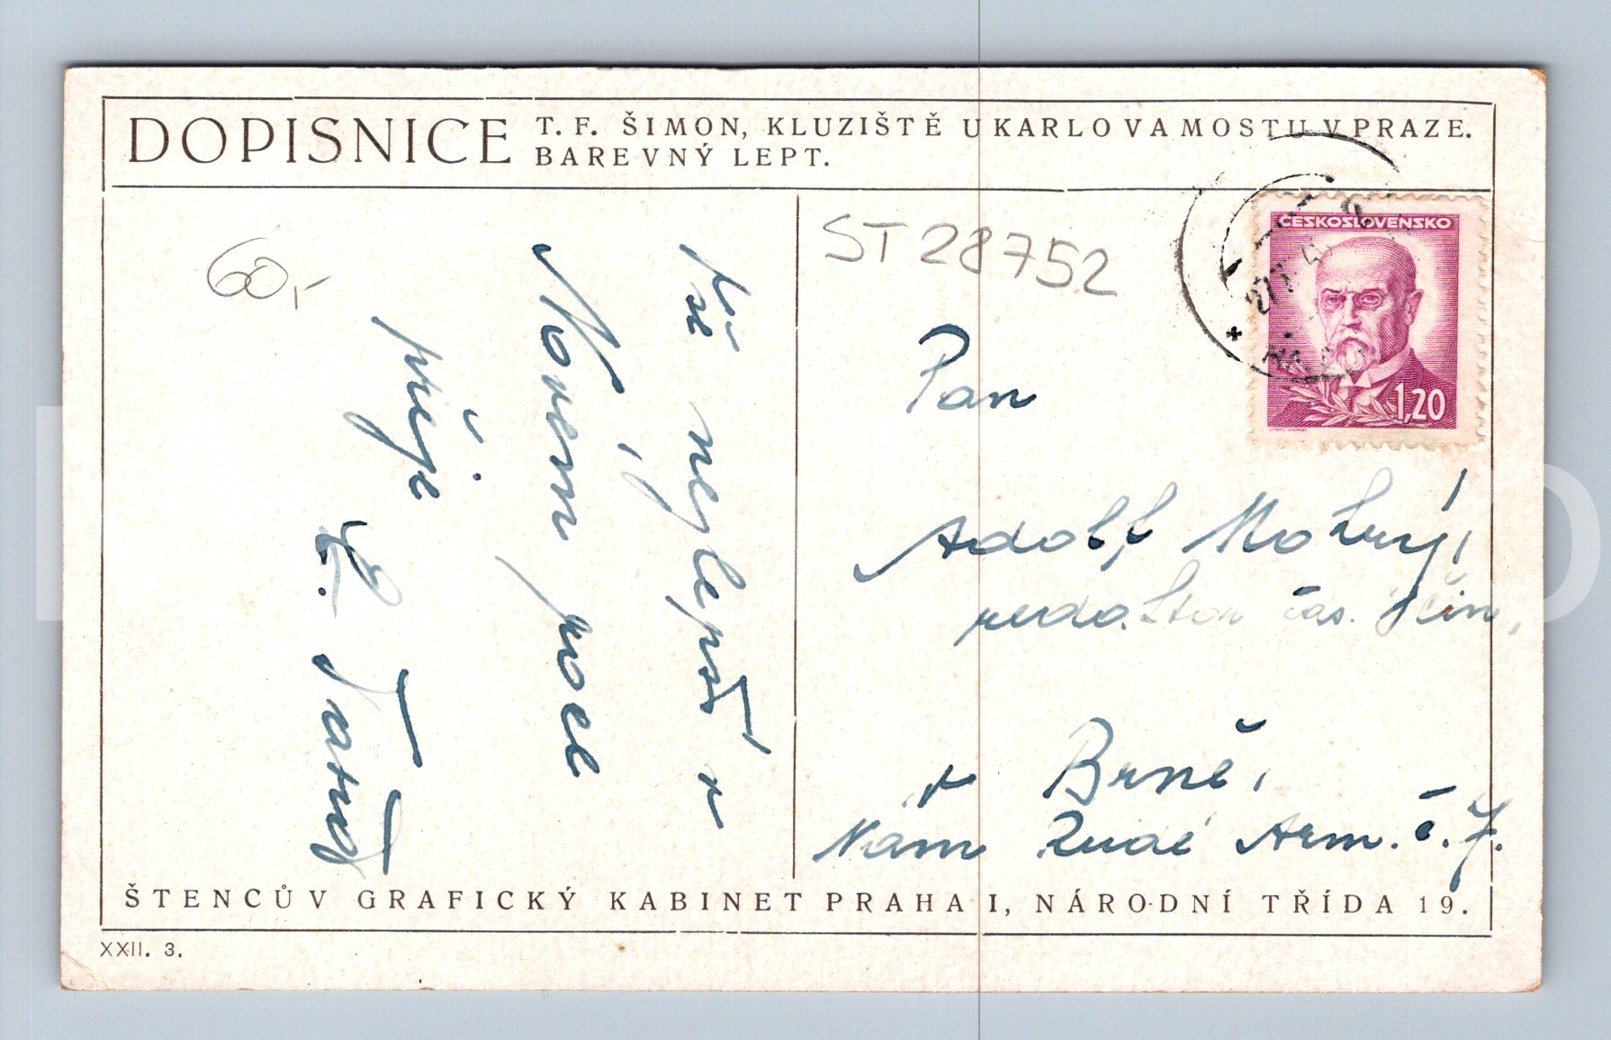 DOPISNICE
T. F. ŠIMON, KLUZIŠTĚ U KARLOVA MOSTU V PRAZE.
BAREVNÝ LEPT.
60,-
ST 28752
ČESKOSLOVENSKO
1,20
vše nejlepší v
Novém roce
přeje
Pan
Adolf
redaktor čas.
v Brně,
Nám Rudé Arm. č. 7.
ŠTENCŮV GRAFICKÝ KABINET PRAHA I, NÁRODNÍ TŘÍDA 19.
XXII. 3.